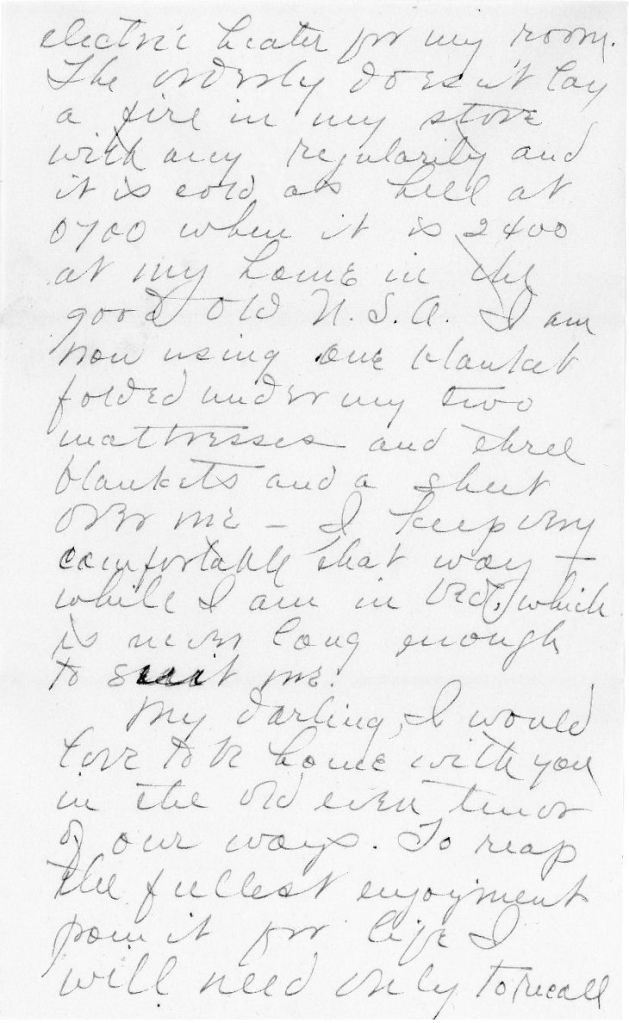 electric heater for my room.
The orderly doesn't lay
a fire in my stove
with any regularity and
it is cold as hell at
0700 when it is 2400
at my home in the
good old U.S.A. I am
now using one blanket
folded under my two
mattresses and three
blankets and a sheet
over me - I keep very
comfortable that way -
while I am in bed, which
is never long enough
to suit me.
My darling, I would
love to be home with you
in the old even tenor
of our ways. To reap
the fullest enjoyment
from it for life I
will need only to recall